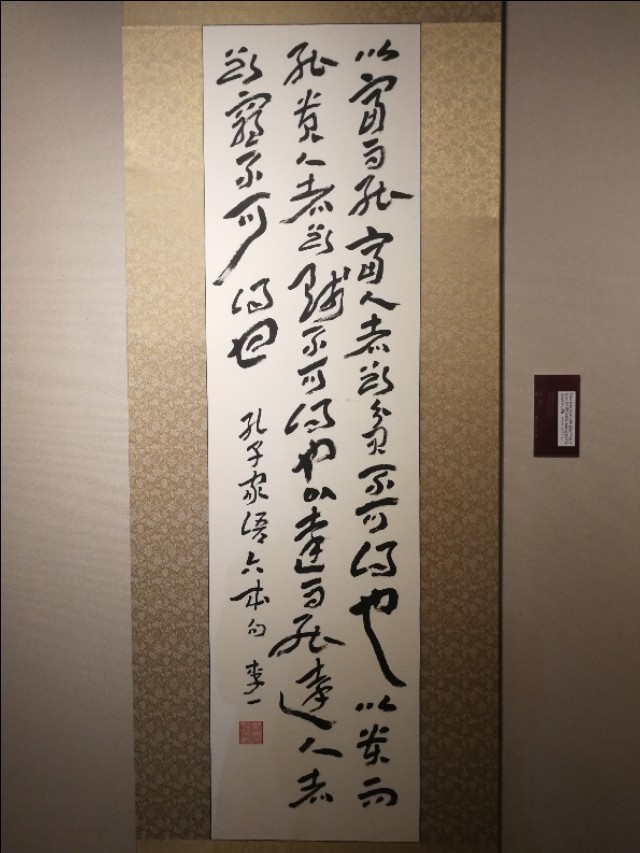 以富而能富人者欲貧不可得也以貴而
能貴人者欲賤不可得也以達而能達人者
欲窮不可得也
孔子家語六本句 李一